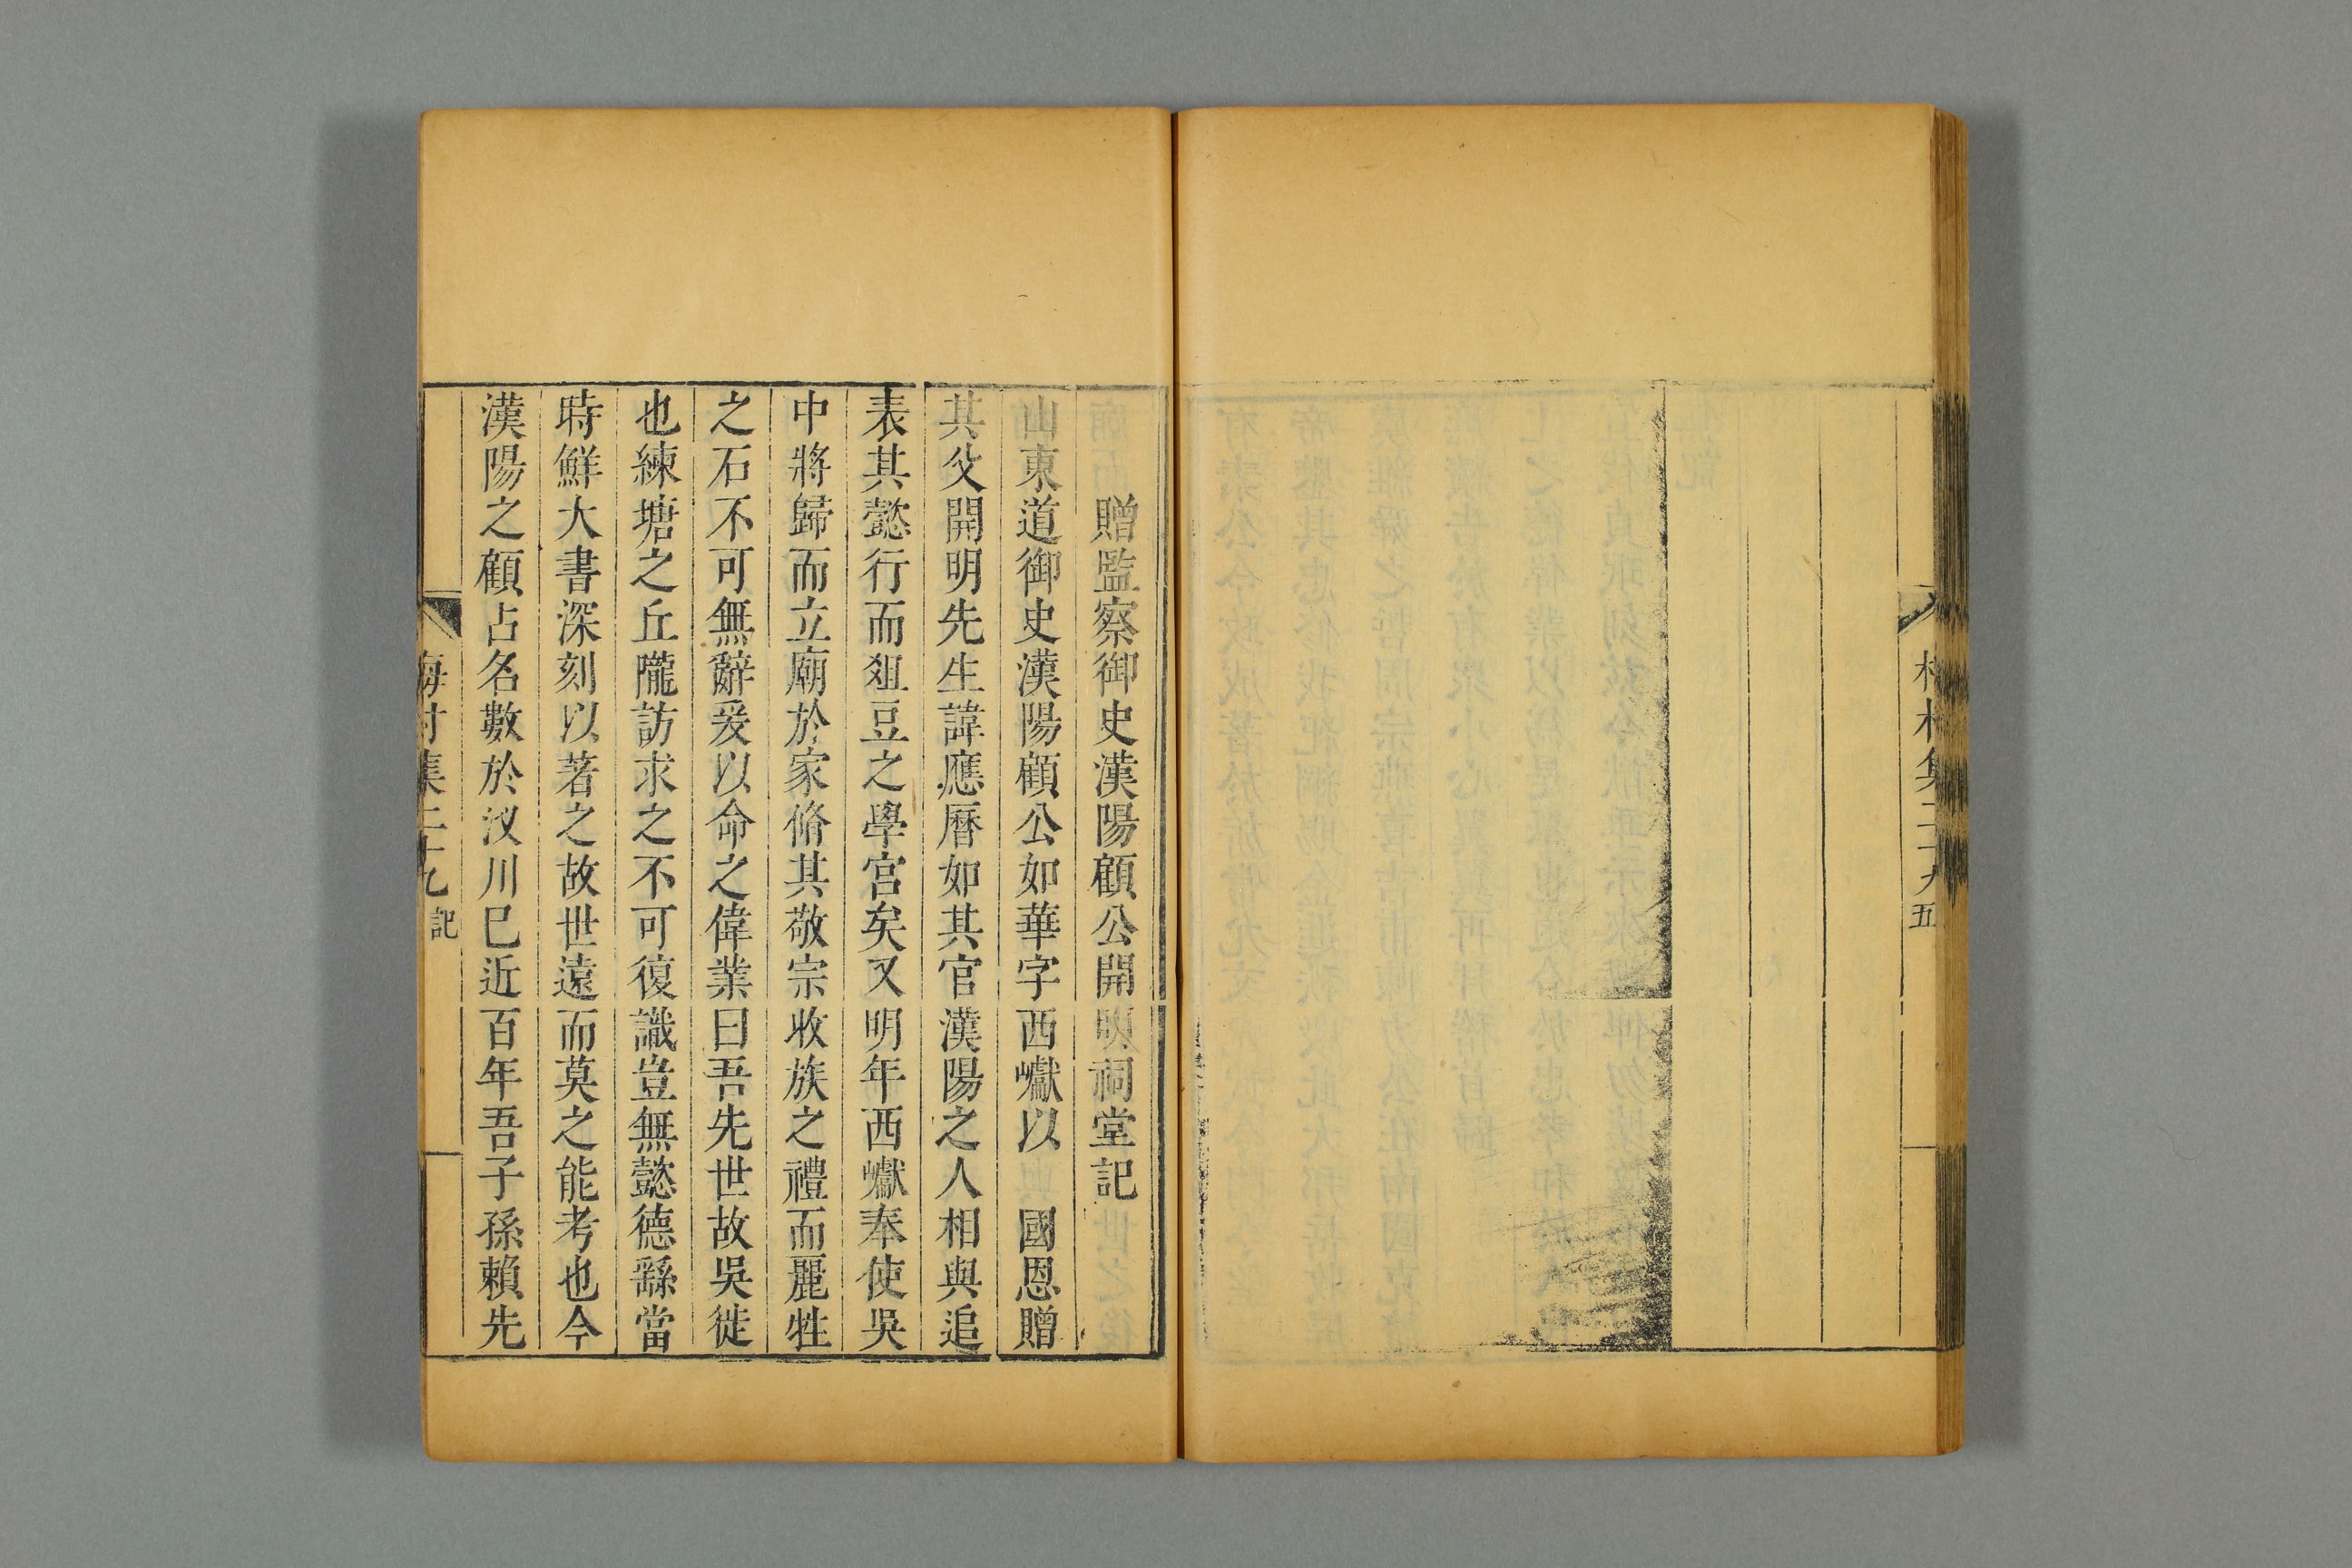 贈監察御史漢陽顧公開明祠堂記
山東道御史漢陽顧公如華字西巘以 國恩贈
其父開明先生諱應曆如其官漢陽之人相與追
表其懿行而俎豆之學宮矣又明年西巘奉使吳
中將歸而立廟於家脩其敬宗收族之禮而麗牲
之石不可無辭爰以命之偉業曰吾先世故吳徙
也練塘之丘隴訪求之不可復識豈無懿德繇當
時鮮大書深刻以著之故世遠而莫之能考也今
漢陽之顧占名數於汊川巳近百年吾子孫賴先
梅村集二十九 記
梅村集二十九 五